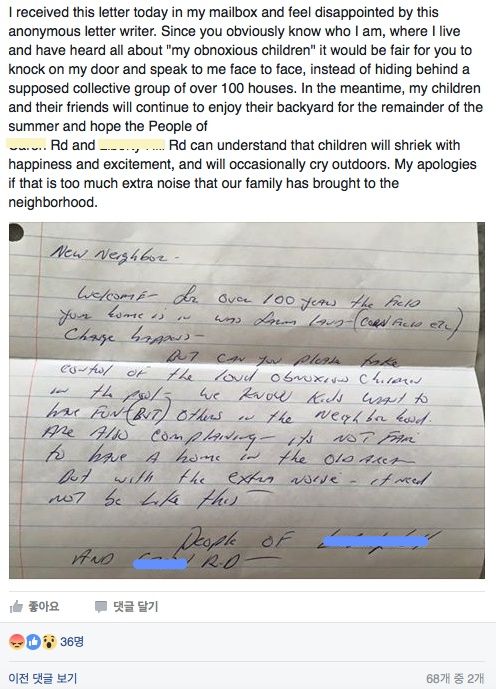 I received this letter today in my mailbox and feel disappointed by this
anonymous letter writer. Since you obviously know who I am, where I live
and have heard all about "my obnoxious children" it would be fair for you to
knock on my door and speak to me face to face, instead of hiding behind a
supposed collective group of over 100 houses. In the meantime, my children
and their friends will continue to enjoy their backyard for the remainder of the
summer and hope the People of
Rd and Rd can understand that children will shriek with
happiness and excitement, and will occasionally cry outdoors. My apologies
if that is too much extra noise that our family has brought to the
neighborhood.
New Neighbor -
Welcome - for over 100 years the field
your home is in was farm land - (corn field etc)
Change happens -
But can you please take
control of the loud obnoxious children
in the pool - we know kids want to
have fun (But) others in the neighborhood.
Are also complaining - its not fair
to have a home in the old area
But with the extra noise - it need
not be like this -
People of
And R.D -
좋아요 댓글 달기
36명
이전 댓글 보기 68개 중 2개